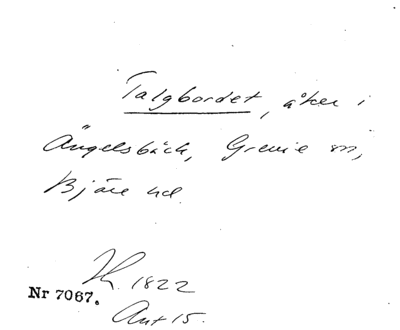 Talgbordet, åker i
Ängelsbäck, Grevie sn,
Bjäre hd.
H. 1822
Nr 7067.
Akt 15.